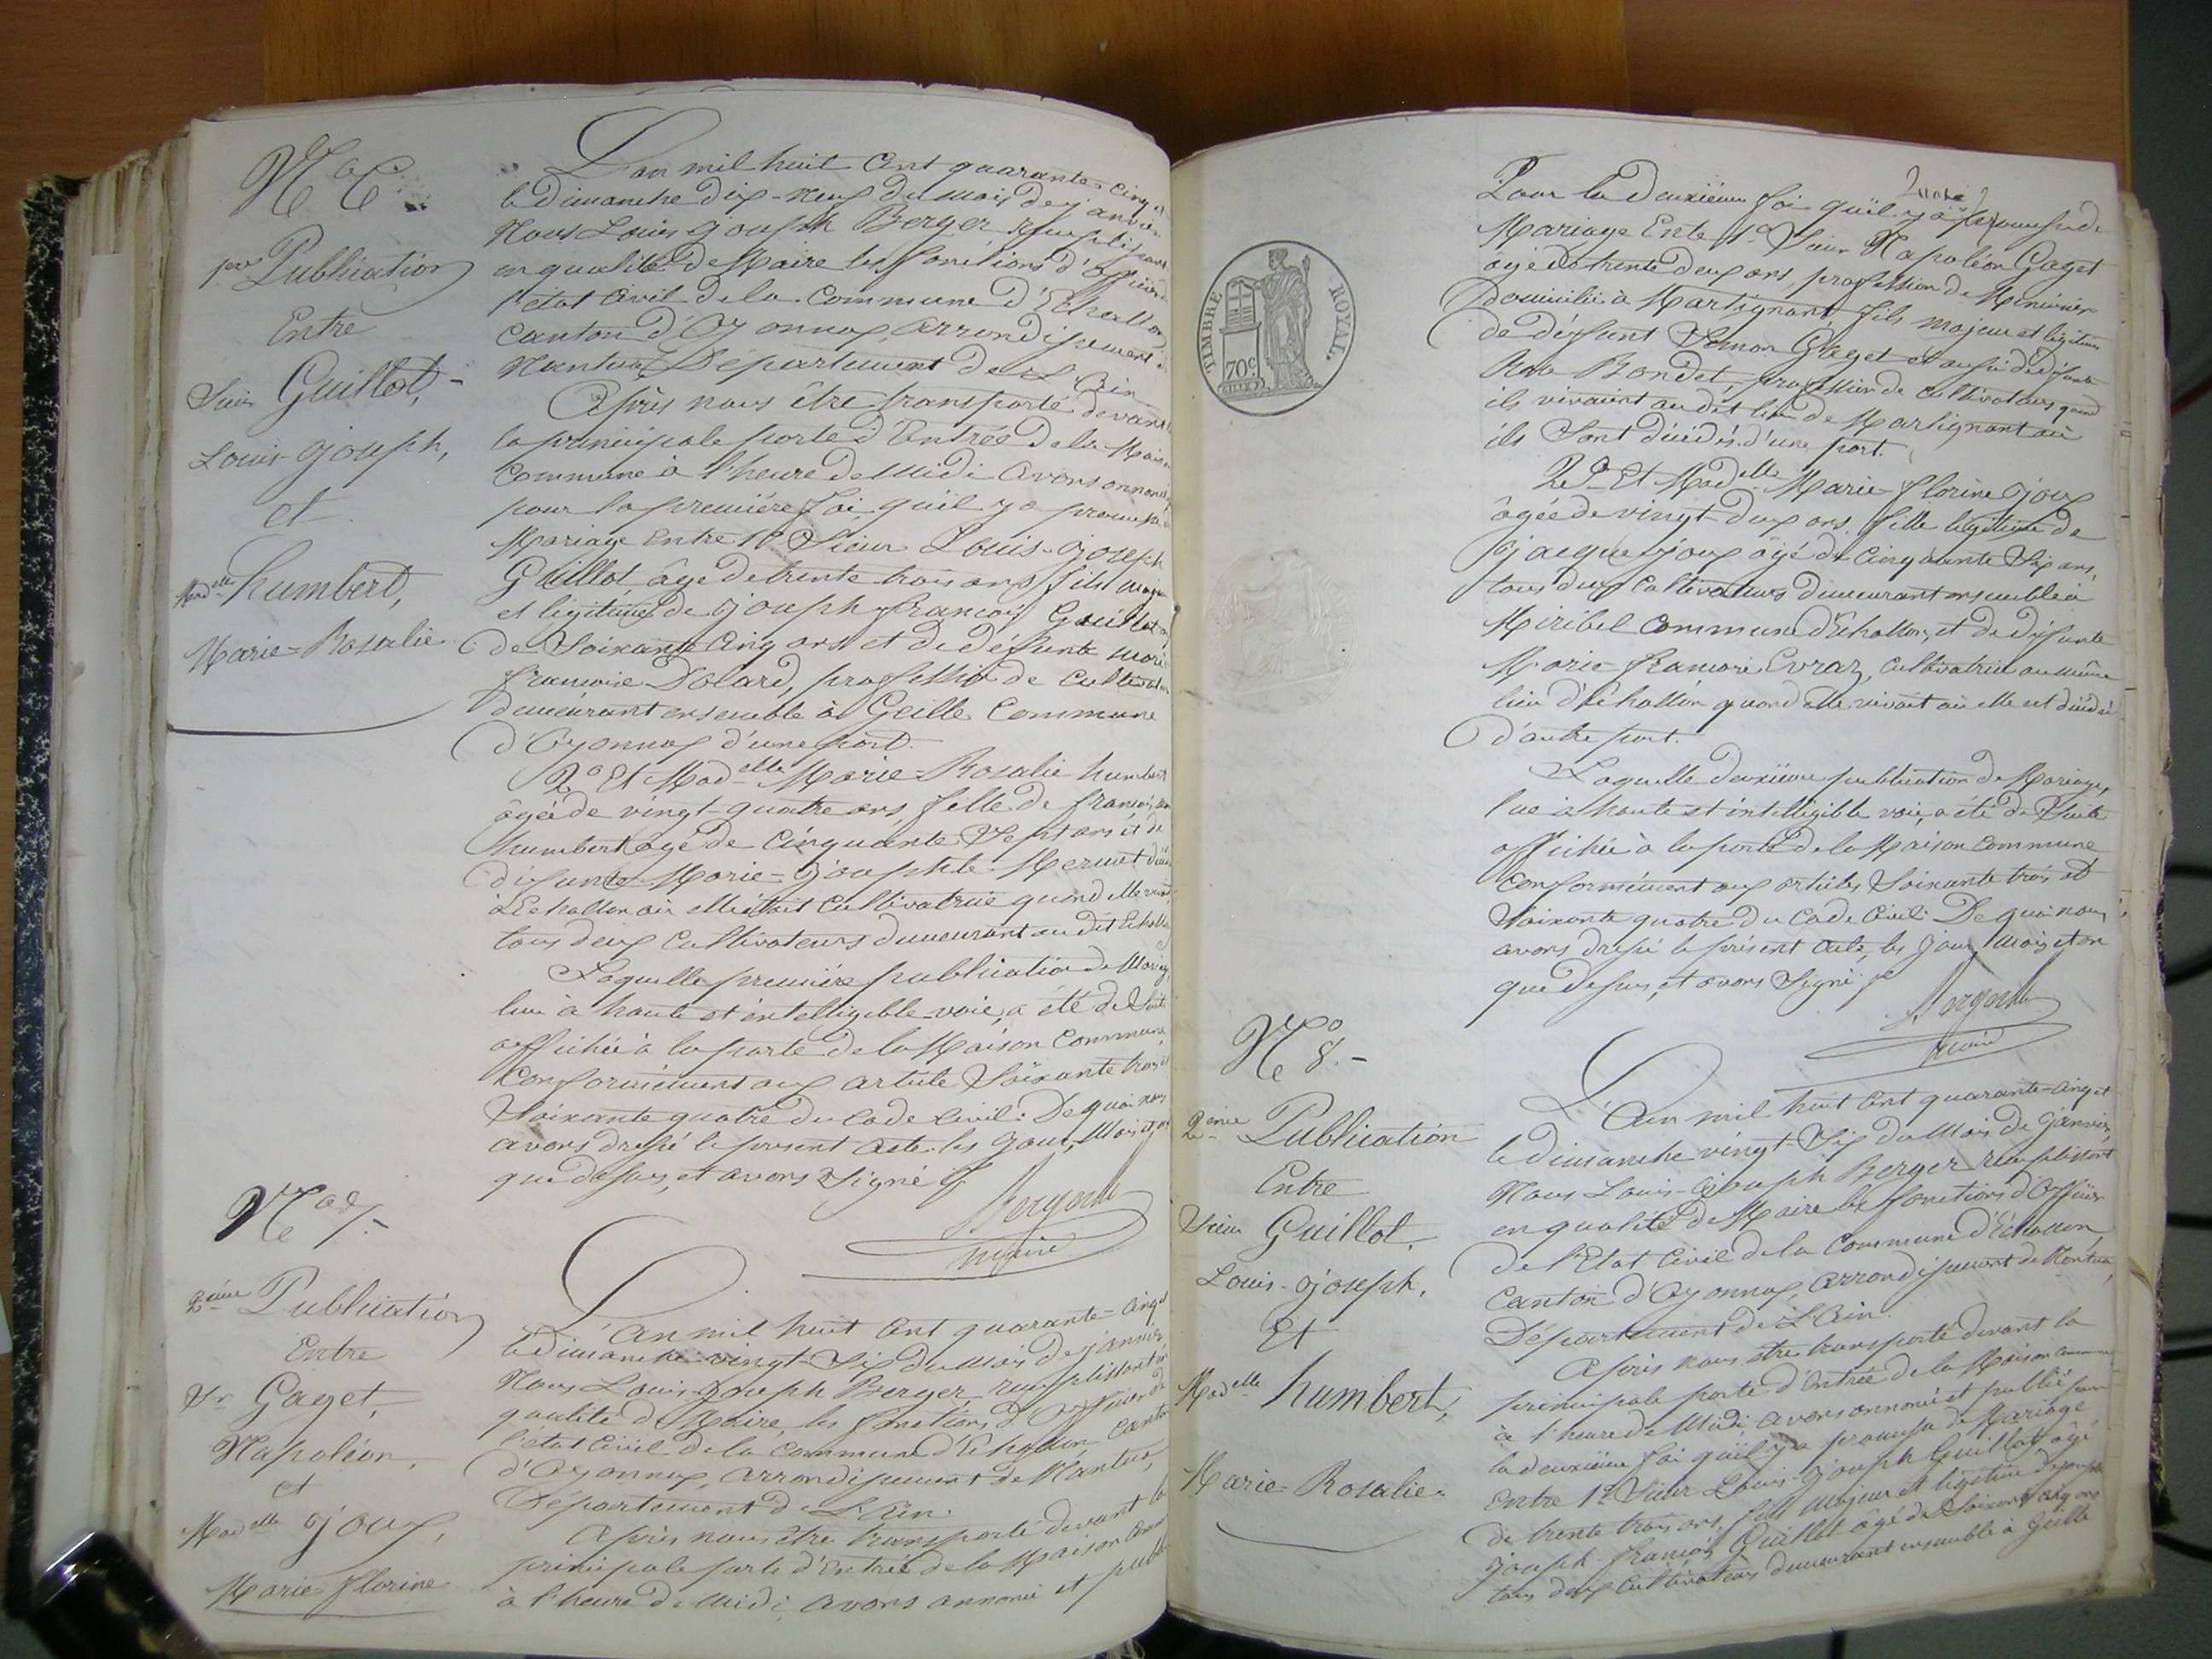 N° 6
1ere Publication
Entre
Sieur Guillot,
Louis-joseph,
et
Madelle humbert,
Marie-Rosalie
L'an mil huit cent quarante-cinq et
le dimanche dix-neuf du mois de janvier
Nous Louis joseph Berger remplissant
en qualité de Maire les fonctions d'officier de
l'état civil de la Commune d'Echallon
canton d'Oyonnax, arrondissement de
Nantua Département de L'Ain
Après nous être transporté devant
la principale porte d'Entrée de la Maison
Commune à l'heure de Midi avons annoncé
pour la première foi qu'il y a promesse de
Mariage Entre 1° Sieur Louis-joseph
Guillot âgé de trente trois ans fils majeur
et légitime de joseph françois Guillot
de Soixante Cinq ans et de défunte marie
françoise Dolard, profession de Cultivateur
demeurant ensemble à Geille Commune
d'Oyonnax d'une part.
2° Et Madelle Marie-Rosalie humbert
âgée de vingt quatre ans, fille de françois
humbert âgé de Cinquante Sept ans et de
défunte Marie-josephte Mermet
à Echallon où elle était Cultivatrice quand elle vivait
tous deux Cultivateurs demeurant au dit Echallon
Laquelle première publication de Mariage
lue à haute et intelligible voie, a été de Suite
affichée à la porte de la Maison Commune
Conformément aux article Soixante trois et
Soixante quatre du Code Civil: De quoi nous
avons dressé le présent acte les jour, Mois et an
que dessus, et avons Signé
Berger
maire
N° 7.-
2eme Publication
Entre
Sr Gaget,
Napoléon,
et
Madelle joux,
Marie-florine
L'An mil huit Cent quarante-Cinq et
le dimanche vingt-Six du Mois de janvier
Nous Louis-joseph Berger remplissant en
qualité de Maire, les fonctions d'Officier de
l'état Civil de la Commune d'Echallon Canton
d'Oyonnax, arrondissement de Nantua,
Département de L'Ain.
Après nous être transporté devant la
principale porte d'Entrée de la Maison Commune
à l'heure de Midi, avons annoncé et publié
TIMBRE ROYAL.
70c
Pour la deuxième foi qu'il y a promesse de
Mariage Entre 1° Sieur Napoléon Gaget
âgé de trente deux ans, profession de Menuisier
domicilié à Martignant fils majeur et légitime
de défunt Simon Gaget et aussi de défunte
Rose Bondet, profession de Cultivateurs quand
ils vivaient au dit lieu de Martignant où
ils Sont décédés. d'une part.
2° Et Madelle Marie-florine joux
âgée de vingt-deux ans fille légitime de
jacque joux âgé de Cinquante Six ans,
tous deux Cultivateurs demeurant ensemble à
Miribel Commune d'Echallon, et de défunte
Marie-françoise Evraz, Cultivatrice au même
lieu d'Echallon quand elle vivait où elle est décédée
d'autre part.
Laquelle deuxième publication de Mariage,
lue à haute et intelligible voie, a été de Suite
affichée à la porte de la Maison Commune
Conformément aux articles Soixante trois et
Soixante quatre du Code Civil: De quoi nous
avons dressé le présent acte, les jour, mois et an
que dessus, et avons Signé
Berger
maire
N° 8.-
2eme Publication
Entre
Sieur Guillot,
Louis-joseph,
Et
Madelle humbert,
Marie-Rosalie.
L'An mil huit Cent quarante-Cinq et
le dimanche vingt-Six du Mois de janvier,
Nous Louis-joseph Berger remplissant
en qualité de Maire les fonctions d'Officier
de l'Etat Civil de la Commune d'Echallon,
Canton d'Oyonnax, arrondissement de Nantua,
Département de L'Ain.
Après nous être transporté devant la
principale porte d'Entrée de la Maison Commune
à l'heure de Midi, avons annoncé et publié pour
la deuxième foi qu'il y a promesse de Mariage
Entre 1° Sieur Louis-joseph Guillot âgé
de trente trois ans, fils Majeur et légitime de joseph
joseph-françois Guillot âgé de Soixante Cinq ans
tous deux Cultivateurs demeurant ensemble à Geille